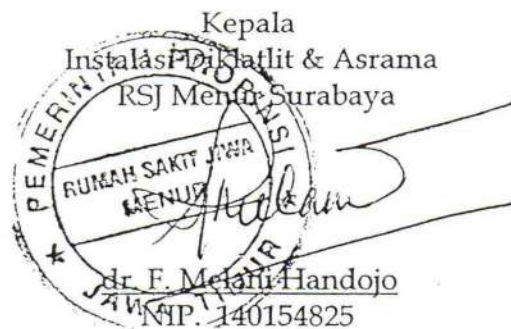 Kepala
Instalasi Diklatlit & Asrama
RSJ Menur Surabaya
PEMERINTAH PROPINSI
RUMAH SAKIT JIWA
MENUR
JAWA TIMUR
dr. F. Melani Handojo
NIP. 140154825